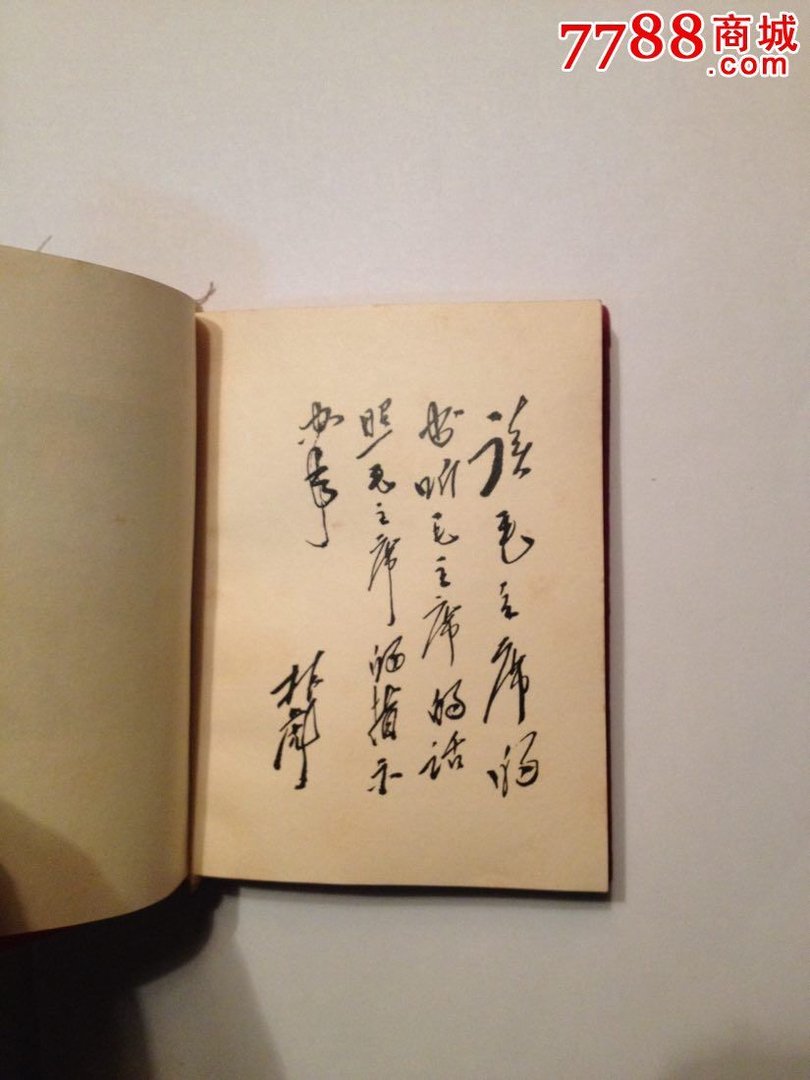 7788商城
.com
读毛主席的
书听毛主席的话
照毛主席的指示
办事
林彪